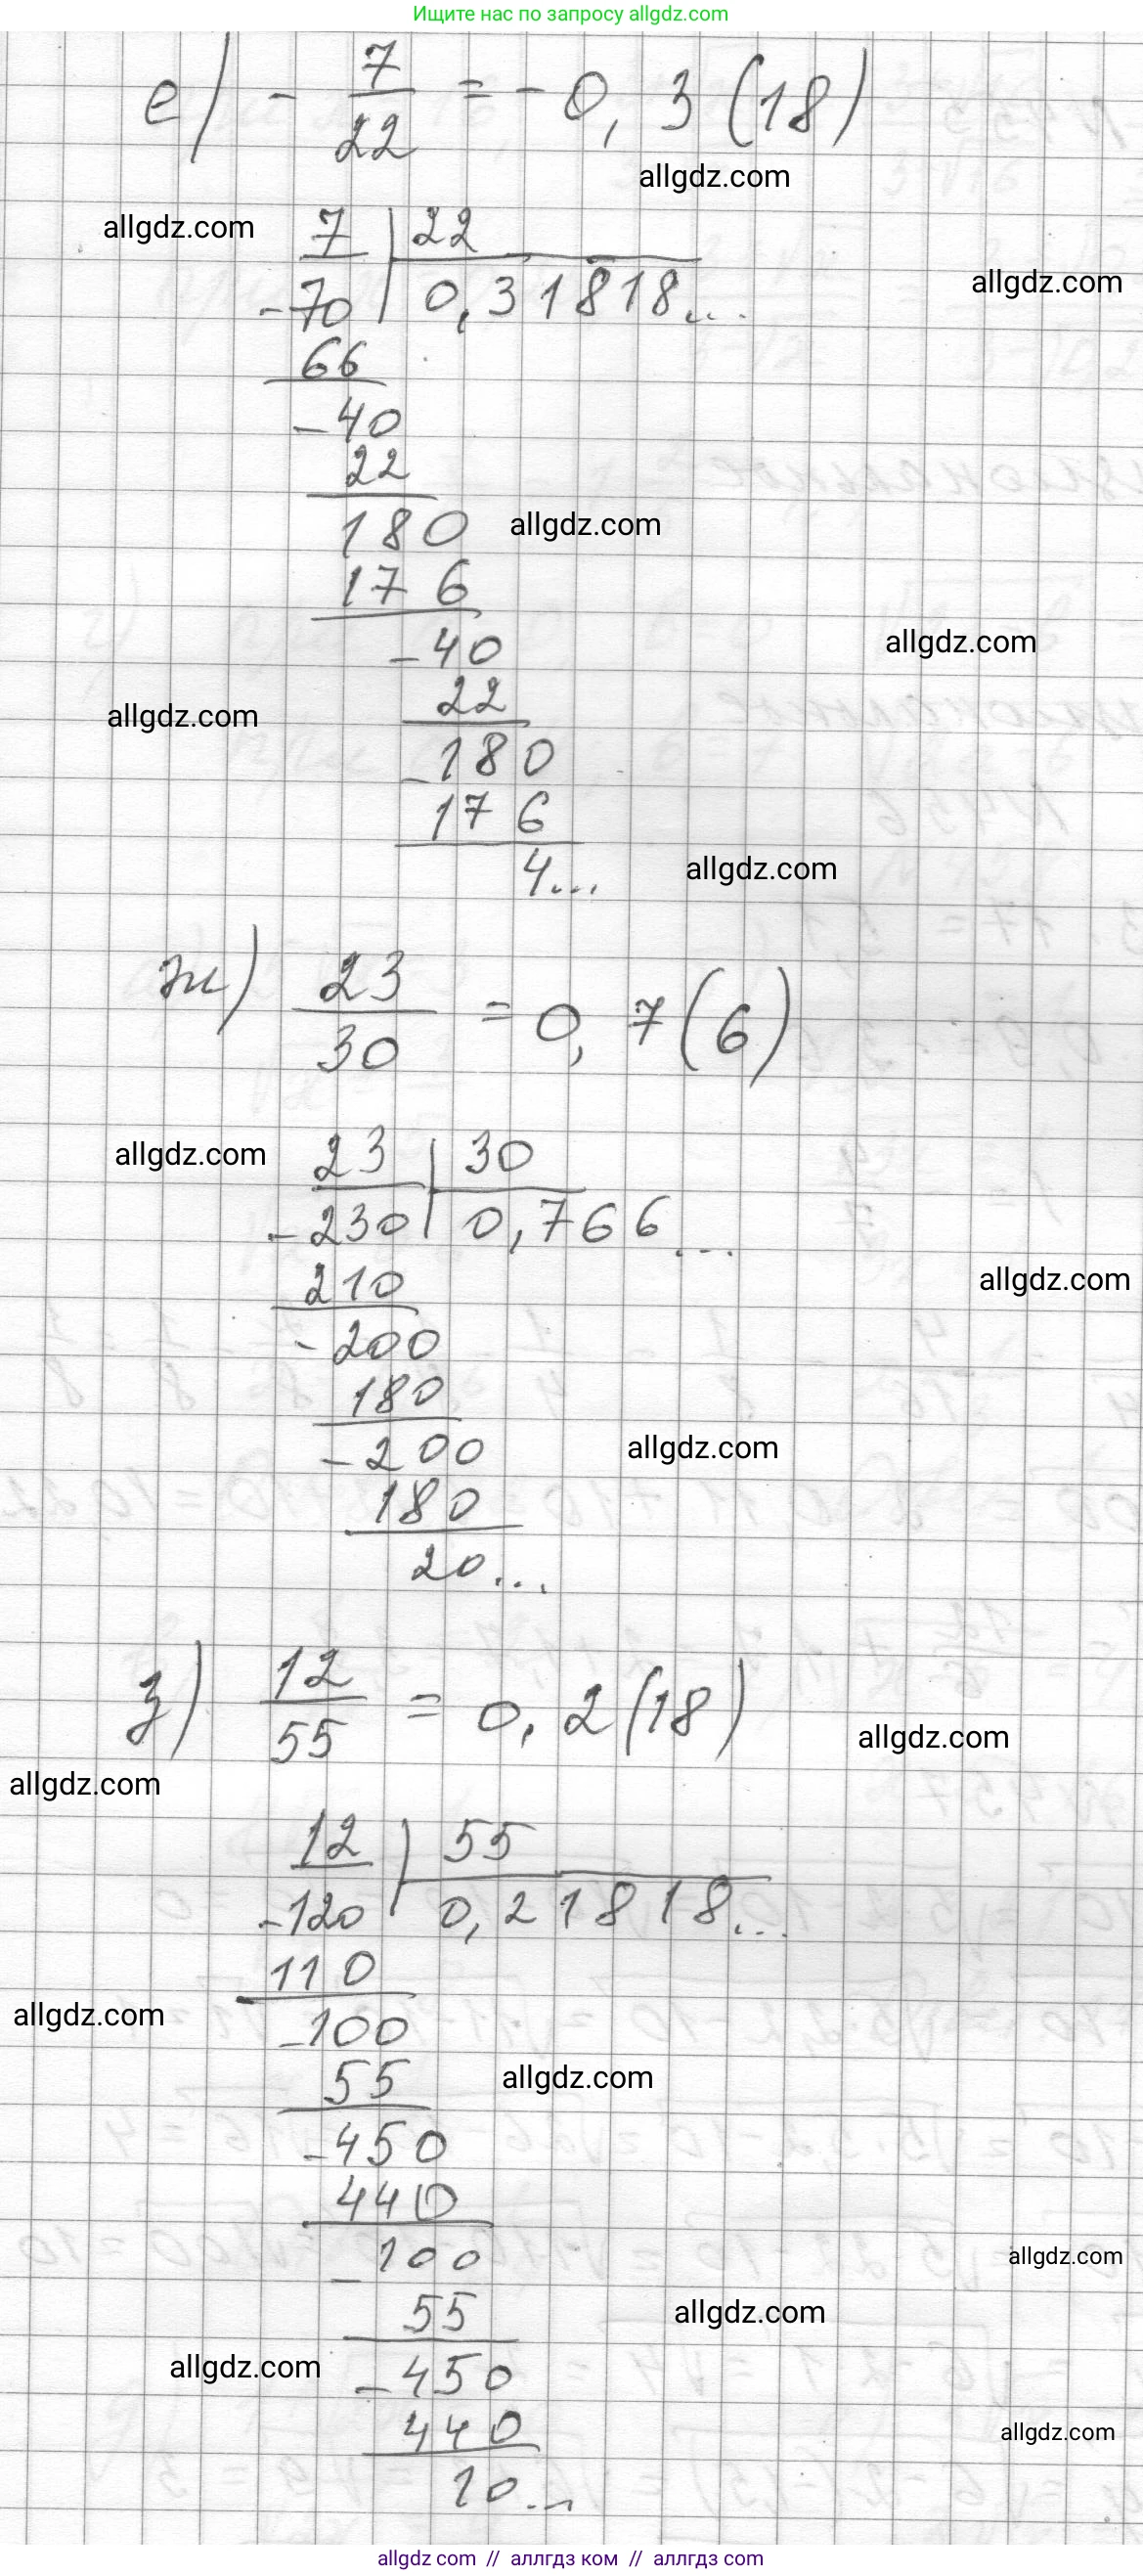 Ищите нас по запросу allgdz.com
е) - 7/22 = - 0,3(18)
allgdz.com
allgdz.com
7 | 22
allgdz.com
-70 | 0,31818...
66
-40
22
180
allgdz.com
176
-40
allgdz.com
22
allgdz.com
-180
176
4...
allgdz.com
ж) 23/30 = 0,7(6)
allgdz.com
23 | 30
-230 | 0,766...
allgdz.com
210
-200
180
-200
allgdz.com
180
20...
з) 12/55 = 0,2(18)
allgdz.com
allgdz.com
12 | 55
-120 | 0,21818...
110
allgdz.com
-100
55
allgdz.com
-450
440
-100
allgdz.com
55
allgdz.com
-450
allgdz.com
440
allgdz.com
10...
allgdz com // аллгдз ком // аллгдз com